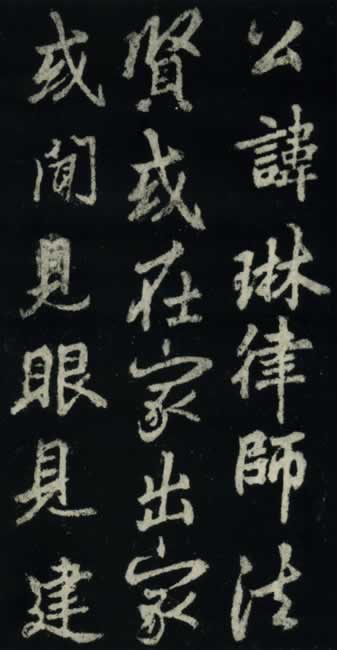 公諱琳律師法
賢或在家出家
或聞見眼見建